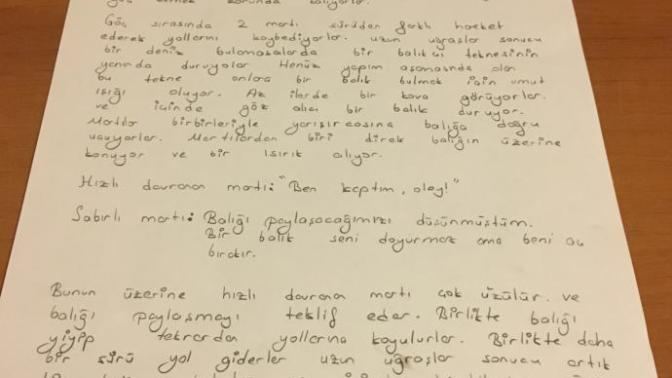 göç etmek zorunda kalıyorlar.
Göç sırasında 2 martı sürüden farklı hareket
ederek yollarını kaybediyorlar. uzun uğraşlar sonucu
bir deniz bulamasalarda bir balıkçı teknesinin
yanında duruyolar Henüz yapım aşamasında olan
bu tekne onlara bir balık bulmak için umut
ışığı oluyor. Az ilerde bir kova görüyorlar.
ve içinde göz alıcı bir balık duruyor.
Martılar birbirleriyle yarışırcasına balığa doğru
uçuyorlar. Martılardan biri direk balığın üzerine
konuyor ve bir ısırık alıyor.
Hızlı davranan martı: "Ben kaptım, oley!"
Sabırlı martı: Balığı paylaşacağımızı düşünmüştüm.
Bir balık seni doyurmaz ama beni aç
bırakır.
Bunun üzerine hızlı davranan martı çok üzülür. ve
balığı paylaşmayı teklif eder. Birlikte balığı
yiyip tekrardan yollarına koyulurlar. Birlikte daha
bir sürü yol giderler uzun uğraşlar sonucu artık